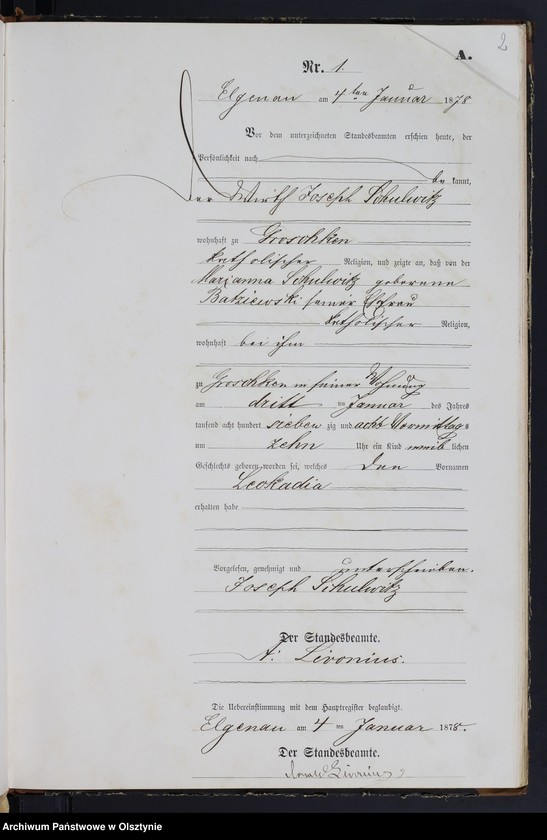 2
A.
Nr. 1.
Elgenau am 4ten Januar 1878
Vor dem unterzeichneten Standesbeamten erschien heute, der
Persönlichkeit nach
bekannt,
der Wirth Joseph Schulwitz
wohnhaft zu Groschken
katholischer Religion, und zeigte an, daß von der
Marianna Schulwitz geborene
Batziewski seiner Ehefrau
katholischer Religion,
wohnhaft bei ihm
zu Groschken in seiner Wohnung
am dritten Januar des Jahres
tausend acht hundert siebenzig und acht Vormittags
um zehn Uhr ein Kind weiblichen
Geschlechts geboren worden sei, welches den Vornamen
Leokadia
erhalten habe
Vorgelesen, genehmigt und unterschrieben.
Joseph Schulwitz
Der Standesbeamte.
A. Livonius.
Die Uebereinstimmung mit dem Hauptregister beglaubigt.
Elgenau am 4 ten Januar 1878.
Der Standesbeamte.
Livonius
Archiwum Państwowe w Olsztynie